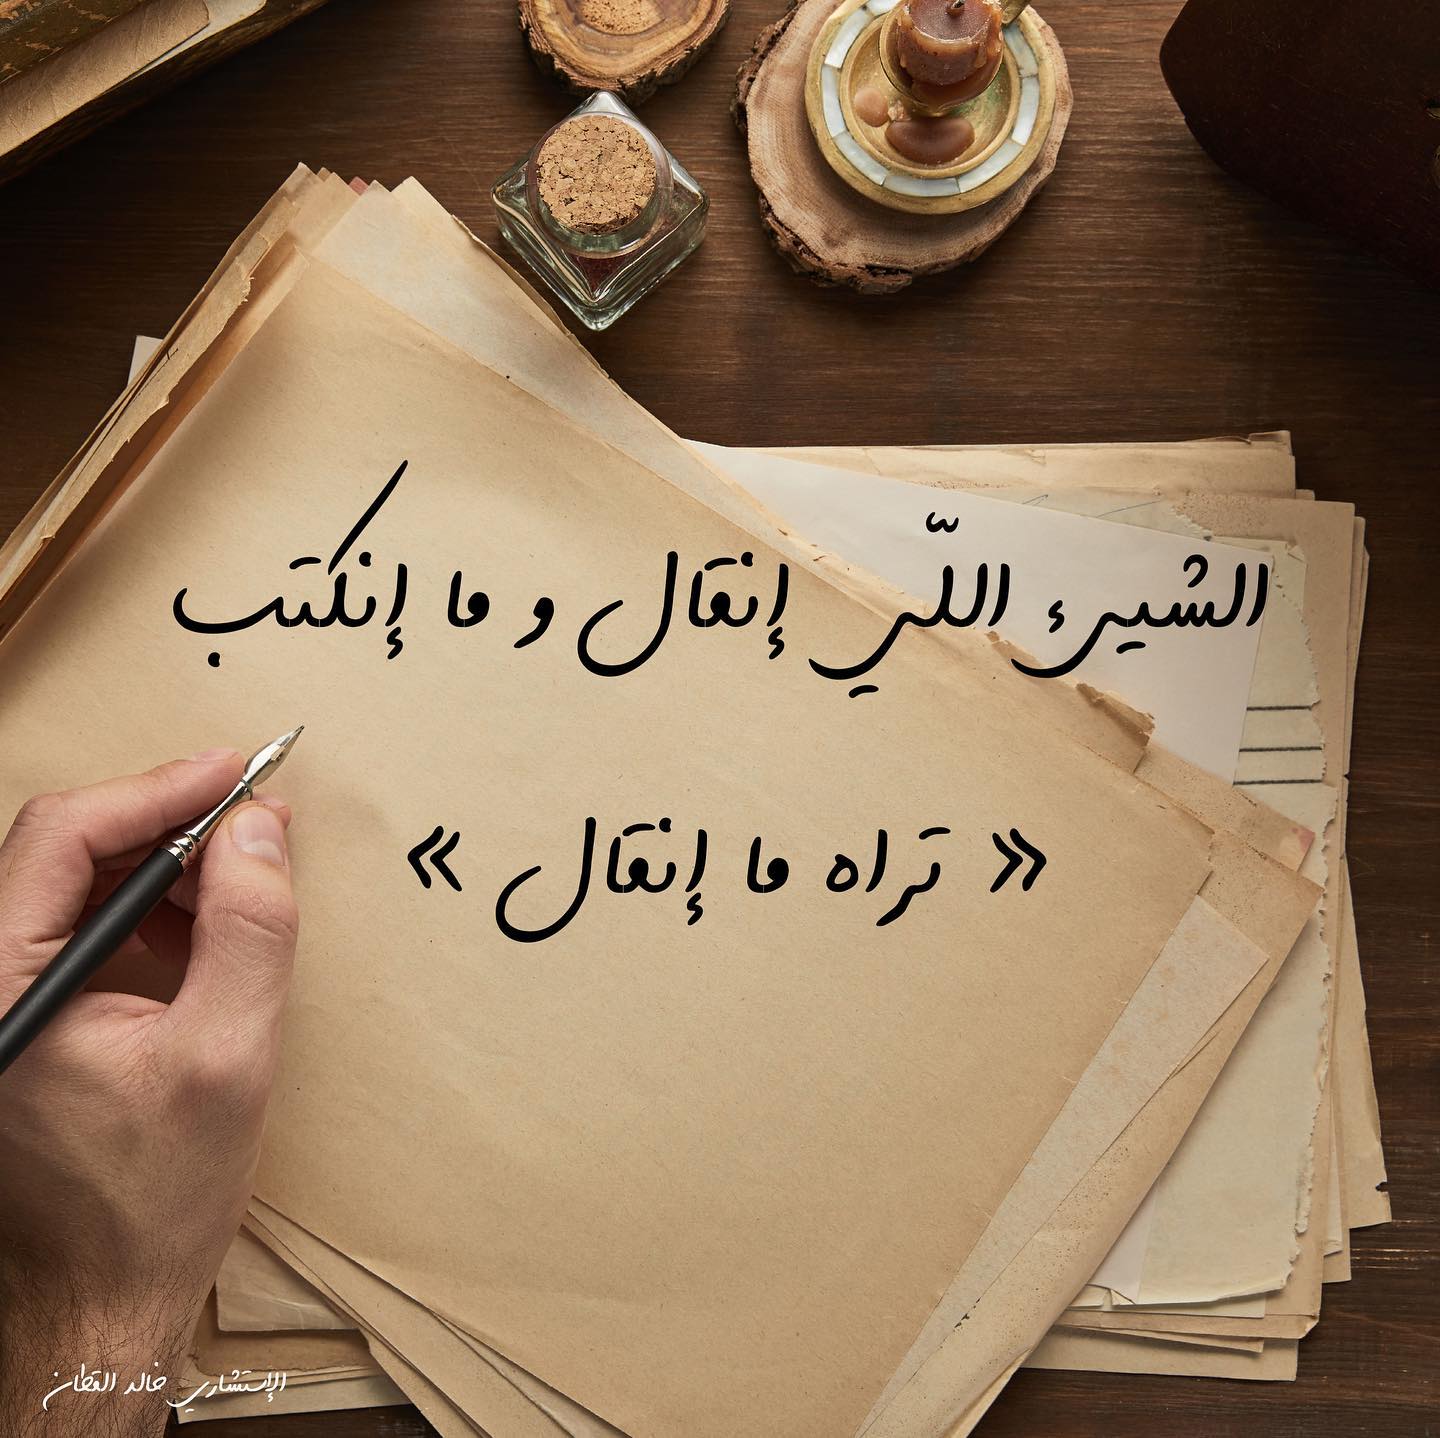 الشيء اللّي إنقال و ما إنكتب
« تراه ما إنقال »
الإستشاري خالد القطان